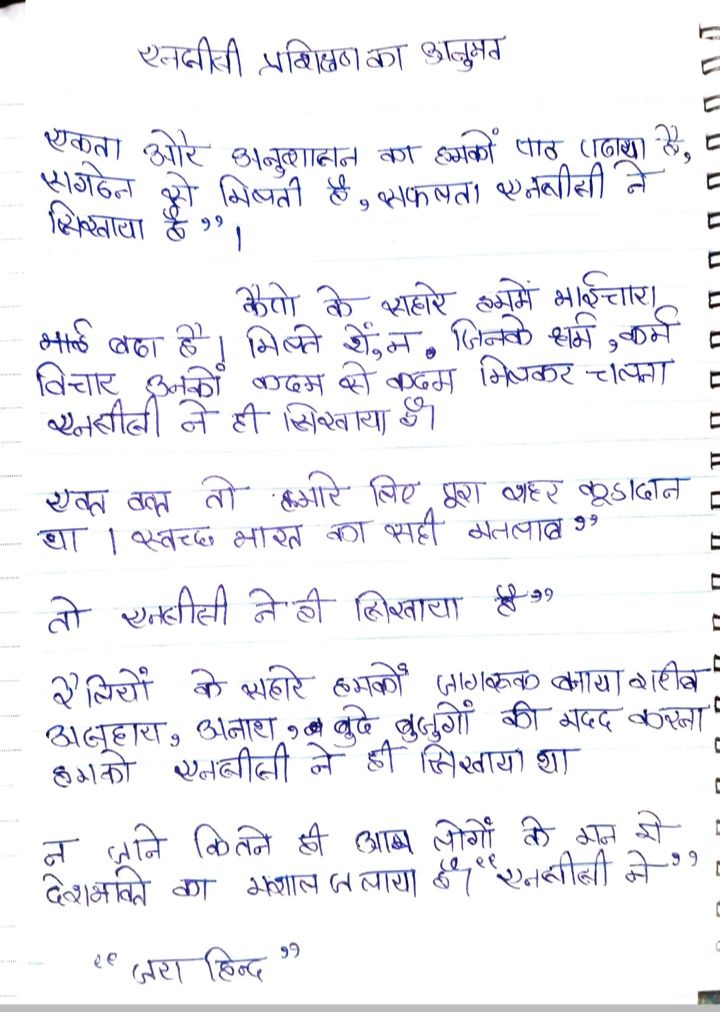 एनसीसी प्रशिक्षण का अनुभव
एकता और अनुशासन का हमकों पाठ पढाया है,
संगठन से मिलती है, सफलता एनसीसी ने
सिखाया है” ।
कैंपो के सहारे हममें भाईचारा
बढा है । मिलते जिनके धर्म, कर्म
विचार उनकों कदम से कदम मिलकर चलना
एनसीसी ने ही सिखाया है।
एक वक्त तो हमारे लिए पूरा शहर कूडादान
था । स्वच्छ भारत का सही मतलाब”
तो एनसीसी ने ही सिखाया है”
रैलियों के सहारे हमकों जागरूक बनाया गरीब
असहाय, अनाथ, बुढे बुजुर्गो की मदद करना
हमको एनसीसी ने ही सिखाया था
न जाने कितने ही आम लोगों के मन में
देशभक्ति का मशाल जलाया है। “एनसीसी ने”
“जय हिन्द”